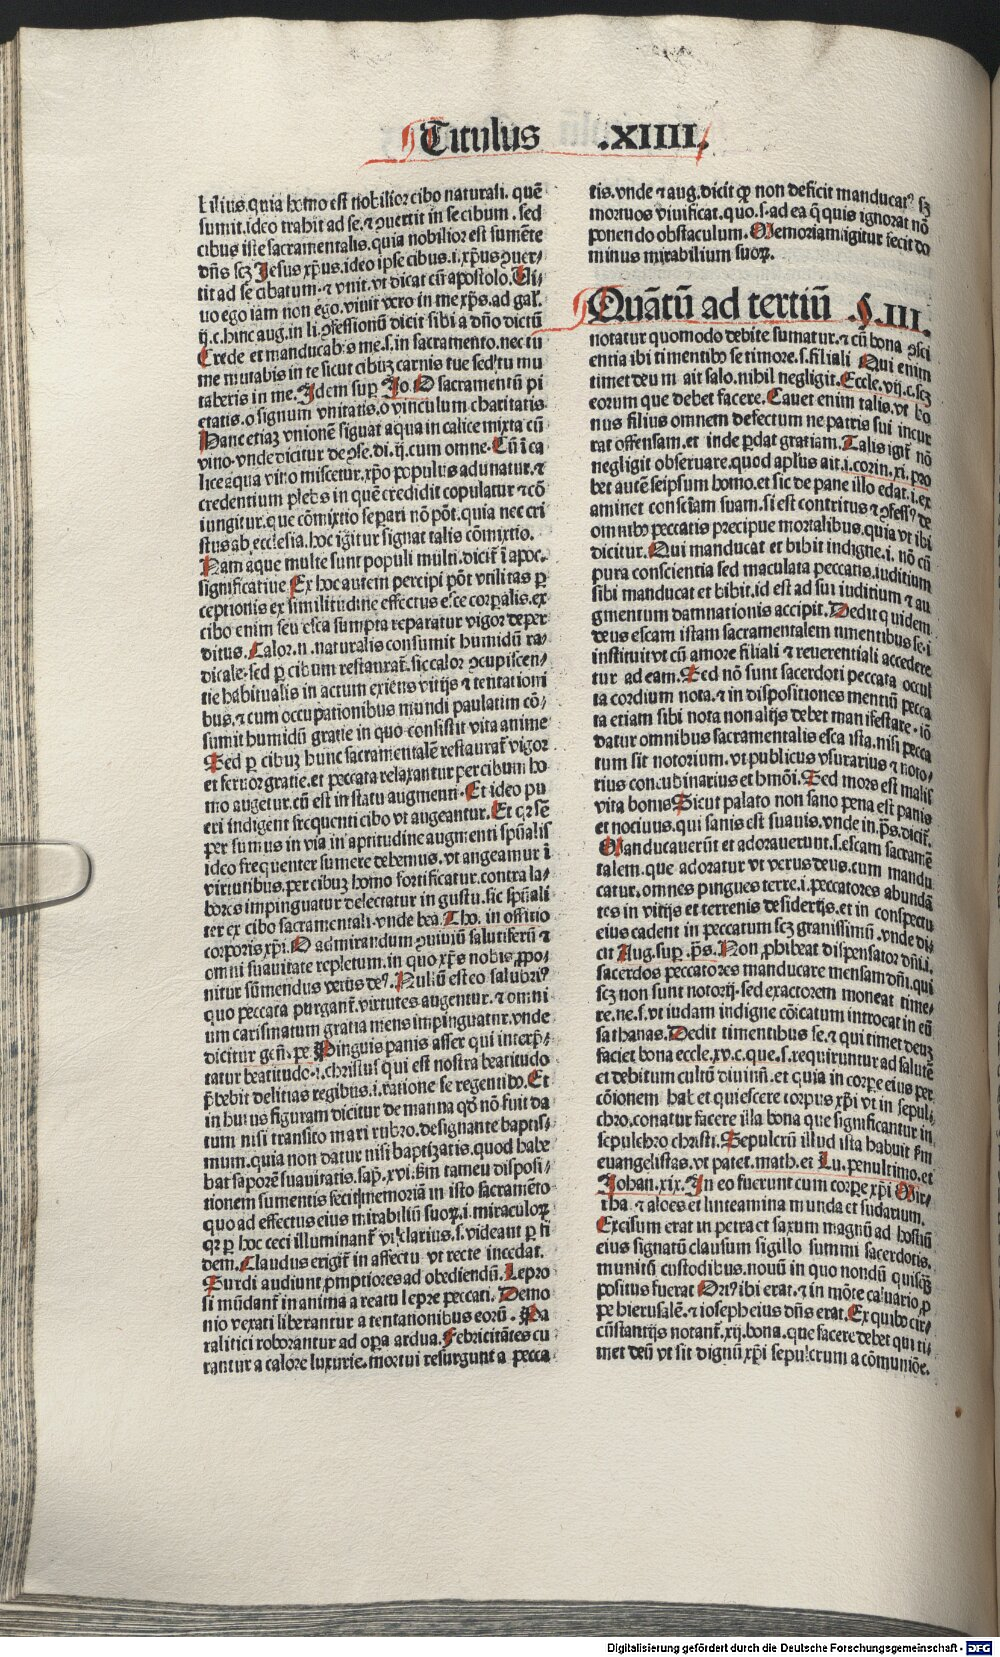 Titulus .XIIII.
bilius. quia homo est nobilior cibo naturali. quē
sumit. ideo trahit ad se. ⁊ ꝯuertit in se cibum. sed
cibus iste sacramentalis. quia nobilior est sumēte
dn̄s scꝫ Jesus xp̄us. ideo ipse cibus. i. xp̄us ꝯuer-
tit ad se cibatum. ⁊ vnit. vt dicat cū apostolo. Ui-
uo ego iam non ego. viuit vero in me xp̄s. ad gal'.
ij. c. hinc aug. in li. ꝯfessionū dicit sibi a dn̄o dictū
Crede et manducabis me. s. in sacramento. nec tu
me mutabis in te sicut cibuꝫ carnis tue sed tu mu
taberis in me. Idem suꝑ Jo. O sacramentū pi
etatis. o signum vnitatis. o vinculum charitatis
Hanc etiaꝫ vnionē siguat aqua in calice mixta cū
vino. vnde dicitur de ꝯse. di. ij. cum omne. Cū ī ca
lice aqua vino miscetur. xp̄o populus adunatur. ⁊
credentium plebs in quē credidit copulatur ⁊ cō
iungitur. que cōmixtio separi nō pōt. quia nec cri
stus ab ecclesia. hoc igitur signat talis cōmixtio.
Nam aque multe sunt populi multi. dicit̄ ī apoc.
significatiue Ex hoc autem percipi pōt vtilitas ꝑ
ceptionis ex similitudine effectus esce corꝑalis. ex
cibo enim seu esca sumpta reparatur vigor deper
ditus. Calor. n. naturalis consumit humidū ra-
dicale. sed ꝑ cibum restaurat̄. sic calor ꝯcupiscen-
tie habitualis in actum exiens vitijs ⁊ tentationi
bus. ⁊ cum occupationibus mundi paulatim cō-
sumit humidū gratie in quo consistit vita anime
Sed ꝑ cibuꝫ hunc sacramentalē restaurat̄ vigor
et feruor gratie. et peccata relaxantur per cibum ho
mo augetur. cū est in statu augmenti. Et ideo pu
eri indigent frequenti cibo vt augeantur. Et qꝛ sē
per sumus in via in aptitudine augmenti spūalis
ideo frequenter sumere debemus. vt angeamur ī
virtutibus. per cibuꝫ homo fortificatur. contra la-
bores impinguatur delectatur in gustu. sic spūali
ter ex cibo sacramentali. vnde bea. Tho. in offitio
corporis xp̄i. O admirandum ꝯuiuiū salutiferū ⁊
omni suauitate repletum. in quo xp̄s nobis ꝓpo-
nitur sūmendus verus deꝰ. Nullū est eo salubriꝰ
quo peccata purgant̄. virtutes augentur. ⁊ omni
um carismatum gratia mens impinguatur. vnde
dicitur gen̄. pe. Pinguis panis asser qui interp̄-
tatur beatitudo. i. christus qui est nostra beatitudo
p̄bebit delitias regibus. i. ratione se regentibꝰ. Et
in huius figuram dicitur de manna qd̄ nō fuit da
tum nisi transito mari rubro. designante baptis-
mum. quia non datur nisi baptizatis. quod habe
bat saporē suauitatis. sap̄. xvi. ẜm tameu disposi-
tionem sumentis fecit memoriā in isto sacramēto
quo ad effectus eius mirabiliū suoꝝ. i. miraculoꝝ
qꝛ ꝑ hoc ceci illuminant̄ vt clarius. s. videant ꝑ fi
dem. Claudus erigit̄ in affectu vt recte incedat.
Surdi audiunt ꝓmptiores ad obediendū. Lepro
si mūdant̄ in anima a reatu lepre peccati. Demo
nio vexati liberantur a tentationibus eorū. Pa
ralitici roborantur ad oꝑa ardua. Febricitātes cu
rantur a calore luxurie. mortui resurgunt a pecca
tis. vnde ⁊ aug. dicit ꝙ non deficit manducatꝰ sꝫ
mortuos viuificat. quo. s. ad ea q̄ quis ignorat nō
ponendo obstaculum. Memoriam igitur fecit do
minus mirabilium suoꝝ.
Quātū ad tertiū §. III.
notatur quomodo debite sumatur. ⁊ cū bona ꝯsci
entia ibi timentibꝰ se timore. s. filiali Qui enim
timet deum ait salo. nihil negligit. Eccle. vij. c. scꝫ
eorum que debet facere. Cauet enim talis. vt bo
nus filius omnem defectum ne patris sui incur
rat offensam. et inde ꝑdat gratiam. Talis igit̄ nō
negligit obseruare. quod aplūs ait. i. corin. xi. pro
bet autē seipsum homo. et sic de pane illo edat. i. ex
aminet conscīam suam. si est contritus ⁊ ꝯfessꝰ de
omnibꝰ peccatis precipue mortalibus. quia vt ibi
dicitur. Qui manducat et bibit indigne. i. nō cū
pura conscientia sed maculata peccatis. iuditium
sibi manducat et bibit. id est ad sui iuditium ⁊ au
gmentum damnationis accipit. Dedit quidem
deus escam istam sacramentalem timentibus se. i
instituit vt cū amore filiali ⁊ reuerentiali accedere
tur ad eam. Sed nō sunt sacerdoti peccata occul
ta cordium nota. ⁊ in dispositiones mentiū pecca
ta etiam sibi nota non alijs debet manifestare. iō
datur omnibus sacramentalis esca ista. nisi pecca
tum sit notorium. vt publicus vsurarius ⁊ noto-
rius concubinarius et hmōi. Sed mors est malis
vita bonis Sicut palato non sano pena est panis
et nociuus. qui sanis est suauis. vnde in. ps̄. dicit̄.
Manducauerūt et adorauerunt. s. escam sacramē
talem. que adoratur vt verus deus. cum mandu
catur. omnes pingues terre. i. peccatores abundā
tes in vitijs et terrenis desiderijs. et in conspectu
eius cadent in peccatum scꝫ grauissimū. vnde di-
cit Aug. suꝑ. ps̄. Non ꝓhibeat dispensator dn̄i. i.
sacerdos peccatores manducare mensam dn̄i. qui
scꝫ non sunt notorij. sed exactorem moneat time-
re. ne. s. vt iudam indigne cōicatum introeat in eū
sathanas. Dedit timentibus se. ⁊ qui timet deuꝫ
faciet bona eccle. xv. c. que. s. requiruntur ad salutē
et debitum cultū diuinū. et quia in corꝑe eius per
cōionem habet quiescere corpus xp̄i vt in sepul-
chro. conatur facere illa bona que significantur in
sepulchro christi. Sepulcrū illud ista habuit ẜm
euangelistas. vt patet. math. et Lu. penultimo. et
Johan. xix. In eo fuerunt cum corꝑe xp̄i Mir-
rha ⁊ aloes et linteamina munda et sudarium.
Excisum erat in petra et saxum magnū ad hostiū
eius signatū clausum sigillo summi sacerdotis.
munitū custodibus. nouū in quo nondū quisꝗ̄
positus fuerat Ortꝰ ibi erat. ⁊ in mōte caluario ꝓ
pe hierusalē. ⁊ ioseph eius dn̄s erat. Ex quibꝰ cir-
cūstantijs notant̄. xij. bona. que facere debet qui ti-
met deū vt sit dignū xp̄i sepulcrum a cōmuniōe.
Digitalisierung gefördert durch die Deutsche Forschungsgemeinschaft - DFG